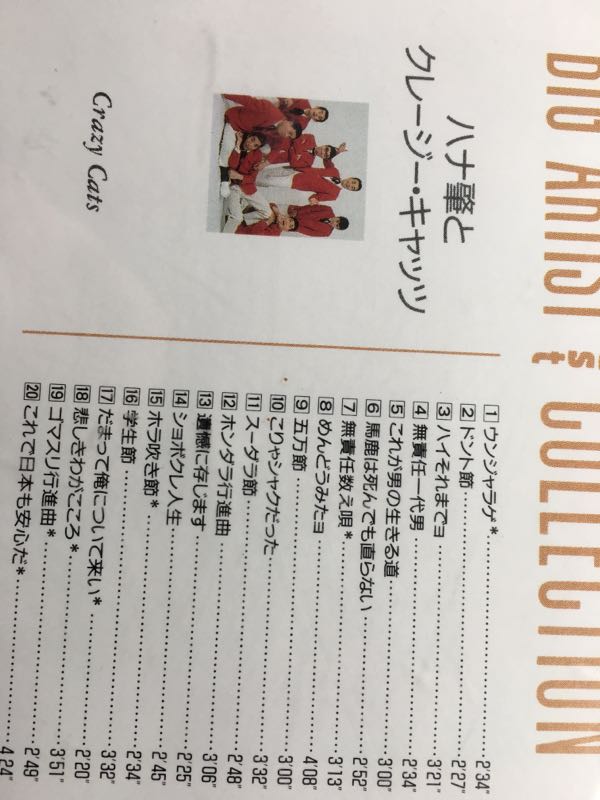 BIG ARTIST st COLLECTION
ハナ肇と
クレージー・キャッツ
Crazy Cats
1 ウンジャラゲ* 2'34"
2 ドント節 2'27"
3 ハイそれまでヨ 3'21"
4 無責任一代男 2'34"
5 これが男の生きる道 3'00"
6 馬鹿は死んでも直らない 2'52"
7 無責任数え唄* 3'13"
8 めんどうみたヨ 4'08"
9 五万節 3'00"
10 こりゃシャクだった 3'32"
11 スーダラ節 2'48"
12 ホンダラ行進曲 3'06"
13 遺憾に存じます 2'25"
14 ショボクレ人生 2'45"
15 ホラ吹き節* 2'34"
16 学生節 3'32"
17 だまって俺について来い* 2'20"
18 悲しきわがこころ* 3'51"
19 ゴマスリ行進曲* 2'49"
20 これで日本も安心だ* 4'24"